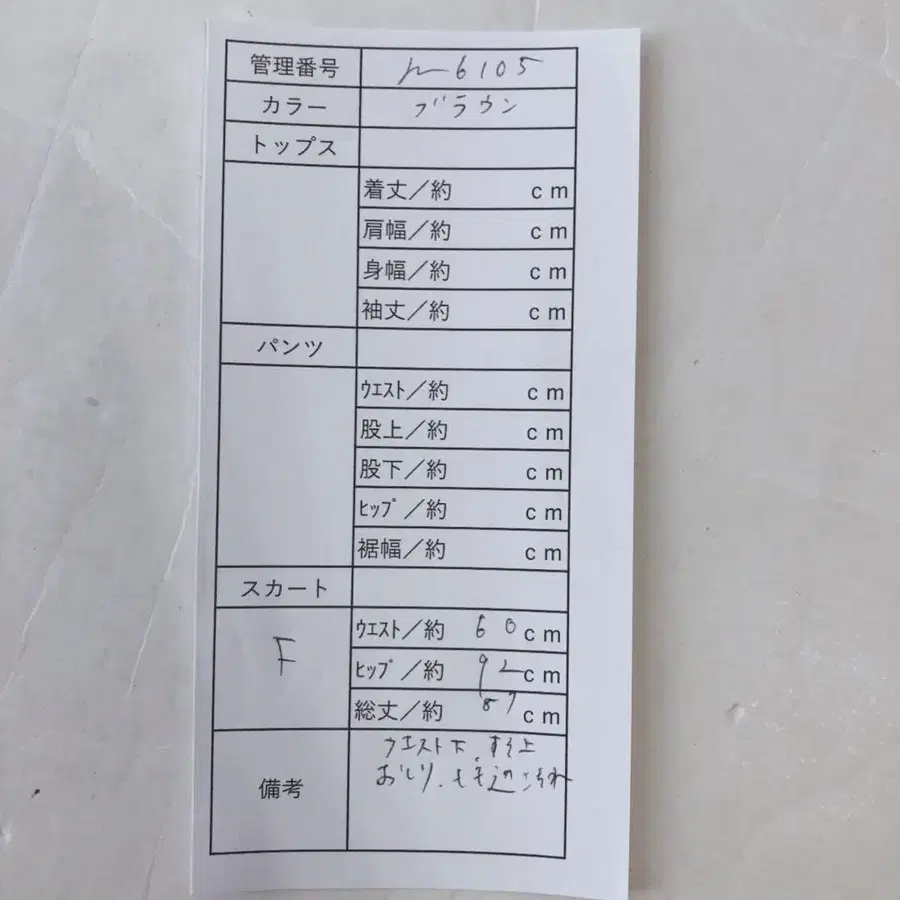 管理番号 6105
カラー ブラウン
トップス
着丈／約 cm
肩幅／約 cm
身幅／約 cm
袖丈／約 cm
パンツ
ｳｴｽﾄ／約 cm
股上／約 cm
股下／約 cm
ﾋｯﾌﾟ／約 cm
裾幅／約 cm
スカート
F
ｳｴｽﾄ／約 60cm
ﾋｯﾌﾟ／約 92cm
総丈／約 87cm
備考
ウエスト下、すそ上
おしり、